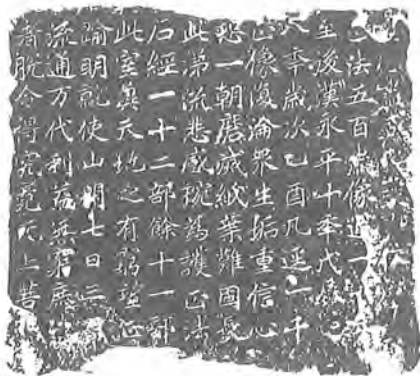 正法五百歲像法一千
至後漢永平十季戊
八季歲次己酉凡逕一千
正像復淪衆生垢重信心
恐一朝磨滅紙葉難固長
此弟流悲感擬為護正法
石經一十二部餘十一部
此堂冀天地之有窮正
喻明就使山開七日三
流通万代利益無窮庶
者脫令得究竟无上菩